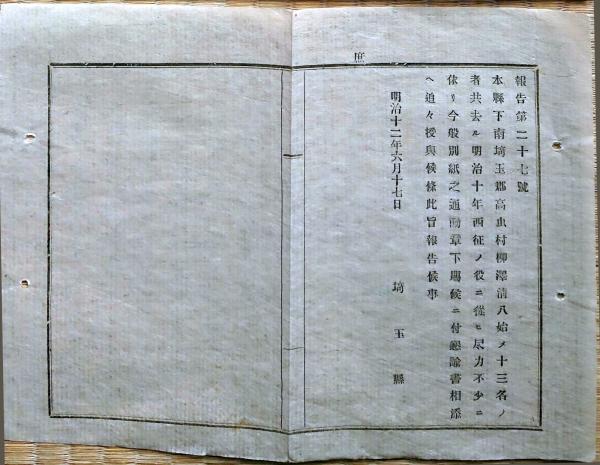 庶
報告第二十七號
本縣下南埼玉郡高虫村柳澤清八始メ十三名ノ
者共去ル明治十年西征ノ役ニ從ヒ尽力不少ニ
依リ今般別紙之通勳章下賜候ニ付懇諭書相添
ヘ追々授與候條此旨報告候事
明治十二年六月十七日
埼玉縣